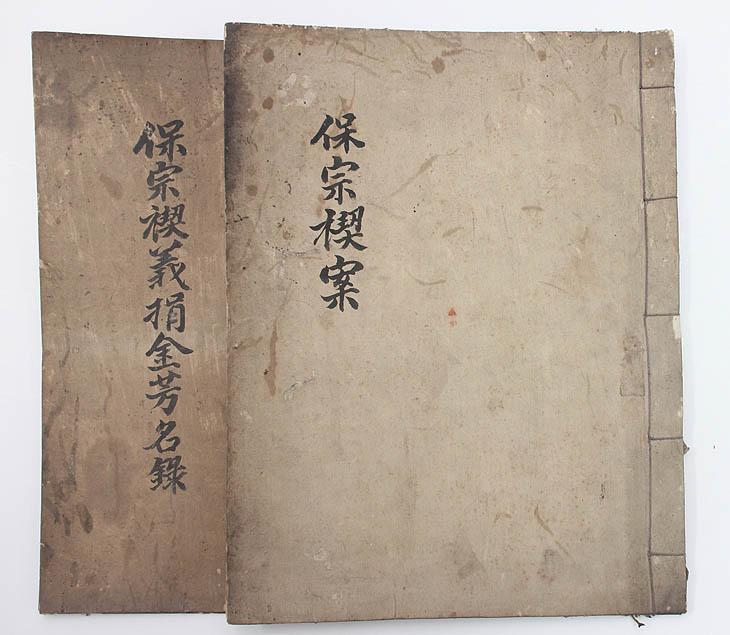 保宗楔案
保宗禊義捐金芳名錄